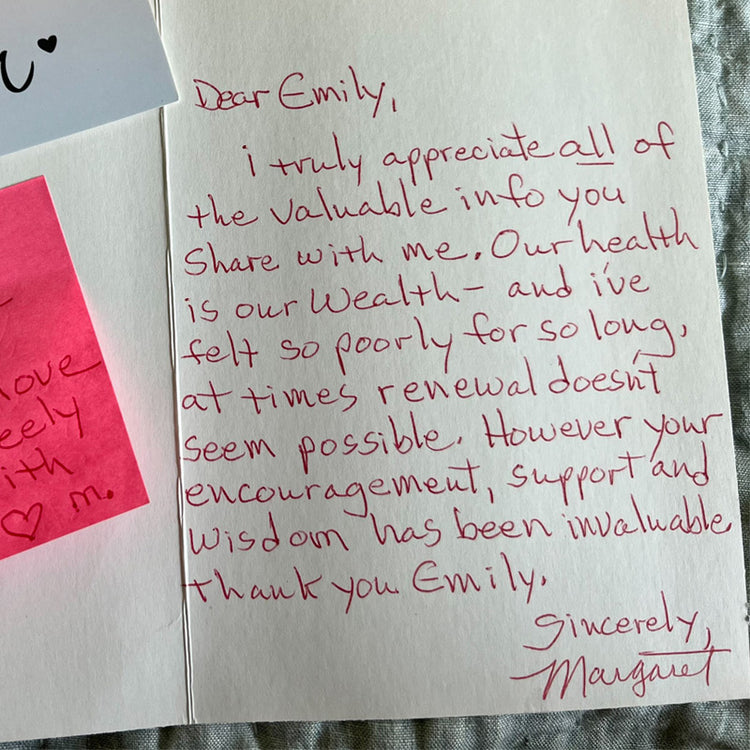 Dear Emily,
i truly appreciate all of
the valuable info you
Share with me. Our health
is our Wealth - and i've
felt so poorly for so long,
at times renewal doesn't
seem possible. However your
encouragement, support and
wisdom has been invaluable
thank you Emily.
Sincerely,
Margaret
love
eely
ith
♡ m.